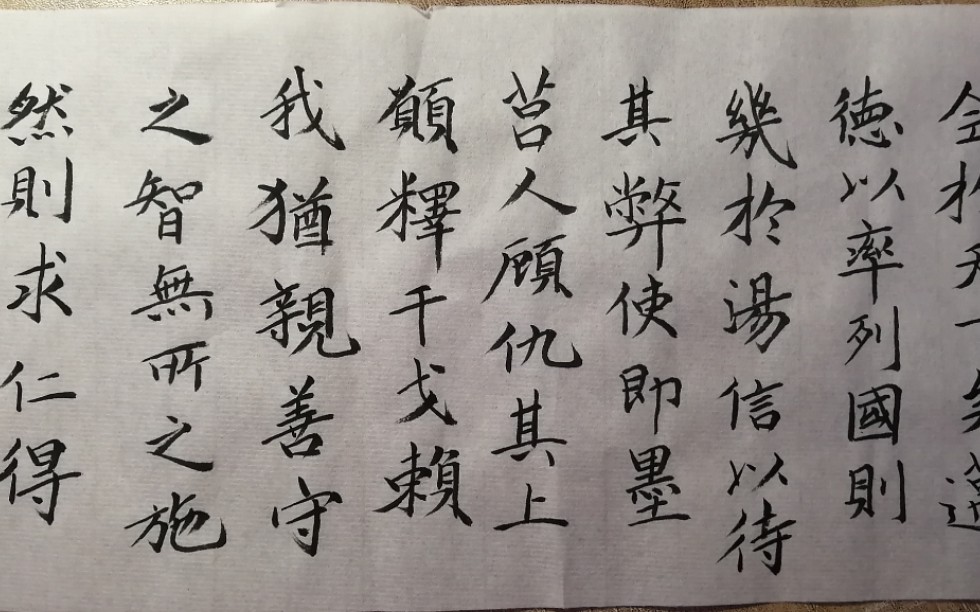 德以率列國則
幾於湯信以待
其弊使即墨
莒人顧仇其上
願釋干戈賴
我猶親善守
之智無所之施
然則求仁得